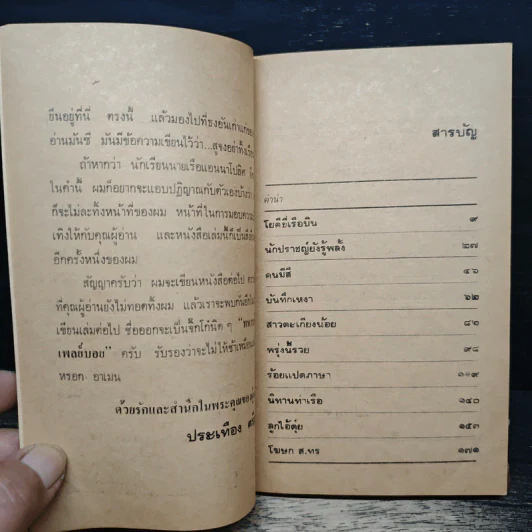 ยืนอยู่ที่นี่ ตรงนี้ แล้วมองไปที่ธงอันเก่าแก่ของ
อ่านมันซี มันมีข้อความเขียนไว้ว่า...สูจงอย่าทิ้งเรือ
ถ้าหากว่า นักเรียนนายเรือแอนนาโปลิศ
ในคำนี้ ผมก็อยากจะแอบปฏิญาณกับตัวเองบ้างว่า
ก็จะไม่ละทิ้งหน้าที่ของผม หน้าที่ในการมอบความ
เทิงให้กับคุณผู้อ่าน และหนังสือเล่มนี้ก็เป็น
อีกครั้งหนึ่งของผม
สัญญาครับว่า ผมจะเขียนหนังสือต่อไป
ที่คุณผู้อ่านยังไม่ทอดทิ้งผม แล้วเราจะพบกันอีก
เขียนเล่มต่อไป ชื่อออกจะเป็นจิ๊กโก๋นิด ๆ
เพลย์บอย" ครับ รับรองว่าจะไม่ให้ช้าเหมือน
หรอก อาเมน
ด้วยรักและสำนึกในพระคุณของ
ประเทือง
สารบัญ
คำนำ
โยคีขี่เรือบิน ๙
นักปราชญ์ยังรู้พลั้ง ๒๗
คนมีสี ๔๖
บันทึกเหงา ๖๒
สาวตะเกียงน้อย ๘๖
พรุ่งนี้รวย ๙๘
ร้อยแปดภาษา ๑๑๙
นิทานท่าเรือ ๑๔๐
ลูกไอ้ตุ่ย ๑๕๓
โฆษก ส.ทร ๑๗๑